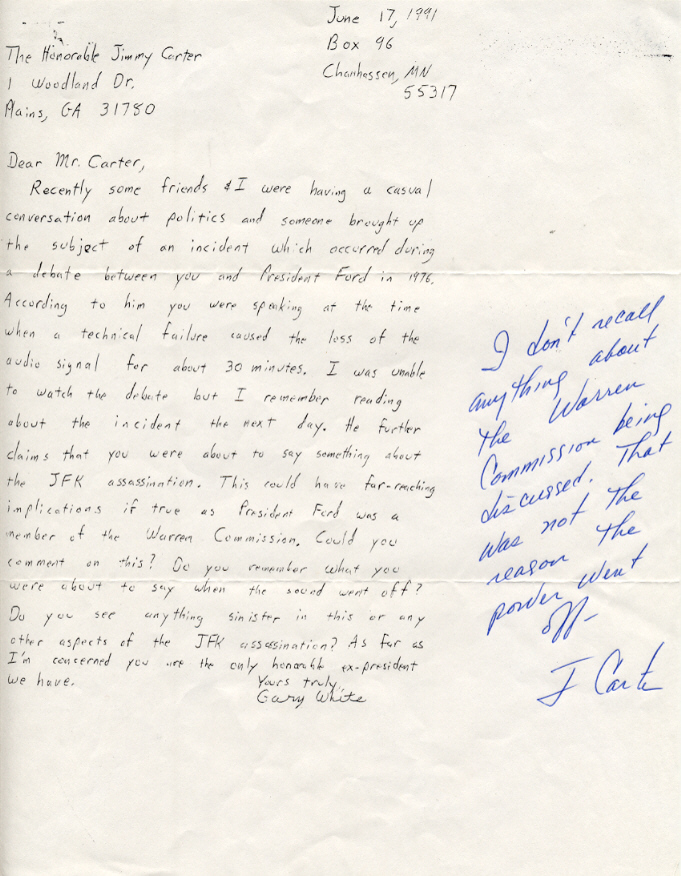 June 17, 1991
Box 96
Chanhassen, MN
55317
The Honorable Jimmy Carter
1 Woodland Dr.
Plains, GA 31780
Dear Mr. Carter,
Recently some friends & I were having a casual
conversation about politics and someone brought up
the subject of an incident which occurred during
a debate between you and President Ford in 1976.
According to him you were speaking at the time
when a technical failure caused the loss of the
audio signal for about 30 minutes. I was unable
to watch the debate but I remember reading
about the incident the next day. He further
claims that you were about to say something about
the JFK assassination. This could have far-reaching
implications if true as President Ford was a
member of the Warren Commission. Could you
comment on this? Do you remember what you
were about to say when the sound went off?
Do you see anything sinister in this or any
other aspects of the JFK assassination? As far as
I'm concerned you are the only honorable ex-president
we have.
Yours truly,
Gary White
I don't recall
anything about
the Warren
Commission being
discussed. That
was not the
reason the
power went
off-
J Carter